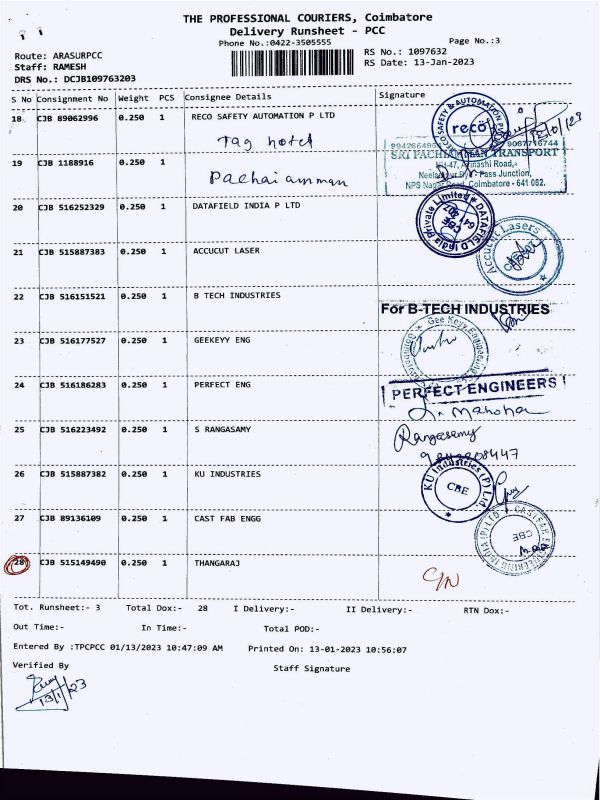 THE PROFESSIONAL COURIERS, Coimbatore
Delivery Runsheet - PCC
Phone No.:0422-3505555
Page No.:3
Route: ARASURPCC
RS No.: 1097632
Staff: RAMESH
RS Date: 13-Jan-2023
DRS No.: DCJB109763203
S No Consignment No Weight PCS Consignee Details Signature
18 CJB 89062996 0.250 1 RECO SAFETY AUTOMATION P LTD
RECO SAFETY & AUTOMATION
reco
Tag hotel
19 CJB 1188916 0.250 1
SRI PACHIAMMAN TRANSPORT
Pachaiamman
NPS Nagar Road, Coimbatore - 641 062.
20 CJB 516252329 0.250 1 DATAFIELD INDIA P LTD
DATAFIELD India Private Limited
CBE
641 202
21 CJB 515887383 0.250 1 ACCUCUT LASER
Accucut Lasers
22 CJB 516151521 0.250 1 B TECH INDUSTRIES
For B-TECH INDUSTRIES
23 CJB 516177527 0.250 1 GEEKEYY ENG
24 CJB 516186283 0.250 1 PERFECT ENG
PERFECT ENGINEERS
25 CJB 516223492 0.250 1 S RANGASAMY
Rangasamy
26 CJB 515887382 0.250 1 KU INDUSTRIES
KU Industries (P) Ltd.
CBE
27 CJB 89136109 0.250 1 CAST FAB ENGG
CBE
28 CJB 515149490 0.250 1 THANGARAJ
Tot. Runsheet:- 3 Total Dox:- 28 I Delivery:- II Delivery:- RTN Dox:-
Out Time:- In Time:- Total POD:-
Entered By :TPCPCC 01/13/2023 10:47:09 AM Printed On: 13-01-2023 10:56:07
Verified By Staff Signature
13/1/23